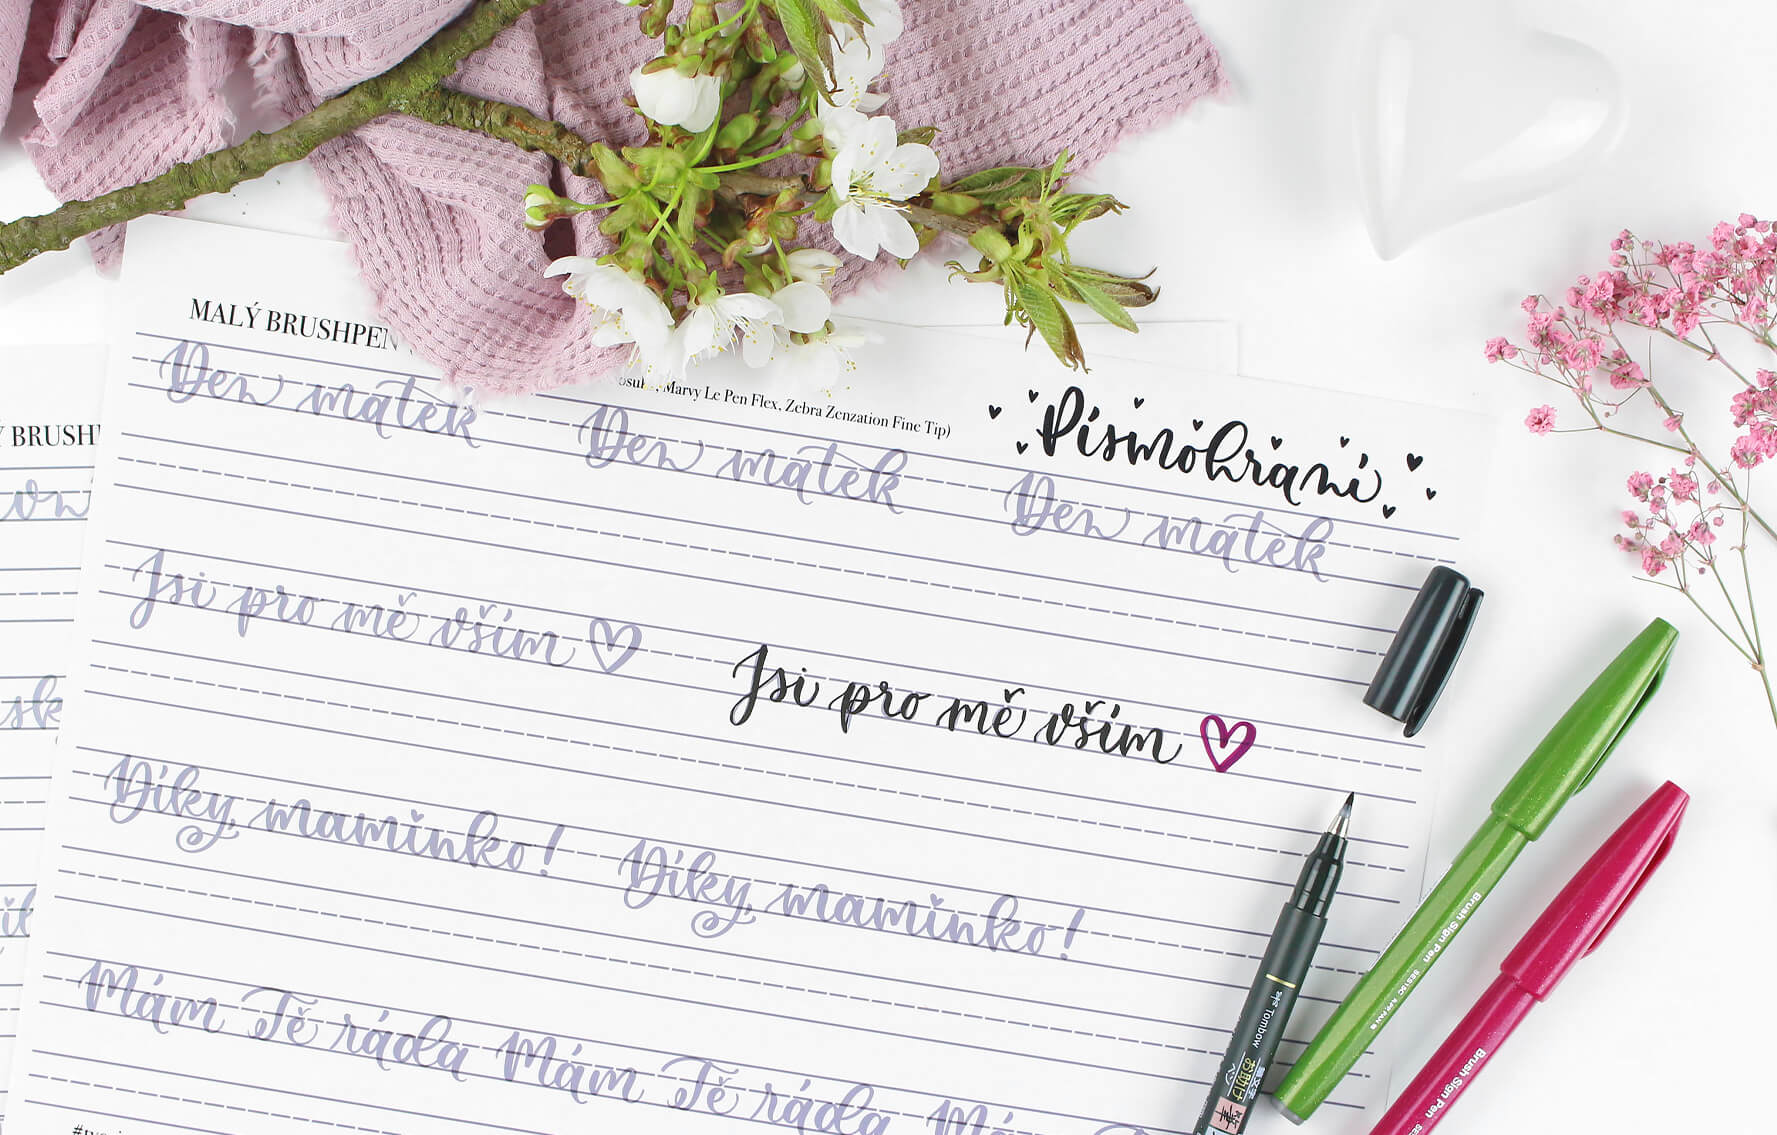 MALÝ BRUSHPEN
Marvy Le Pen Flex, Zebra Zenzation Fine Tip)
Písmohraní
Den matek Den matek Den matek
Jsi pro mě vším Jsi pro mě vším
Díky, maminko! Díky, maminko!
Mám Tě ráda Mám Tě ráda
BRUSH
Tombow
Brush Sign Pen
Brush Sign Pen